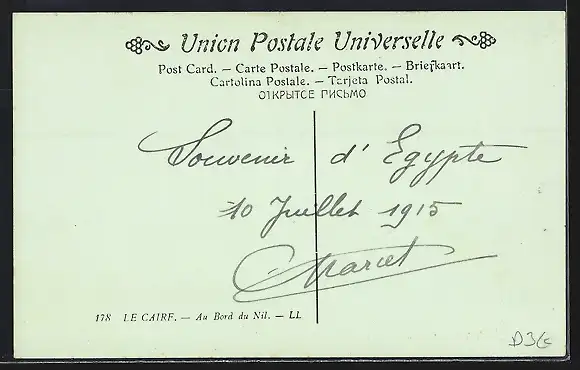 Union Postale Universelle
Post Card. — Carte Postale. — Postkarte. — Briefkaart.
Cartolina Postale. — Tarjeta Postal.
ОТКРЫТСЕ ПИСЬМО
Souvenir d'Egypte
10 Juillet 1915
Marcel
178 LE CAIRE. — Au Bord du Nil. — LL